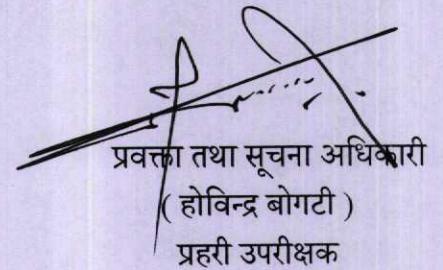 प्रवक्ता तथा सूचना अधिकारी
( होविन्द्र बोगटी )
प्रहरी उपरीक्षक